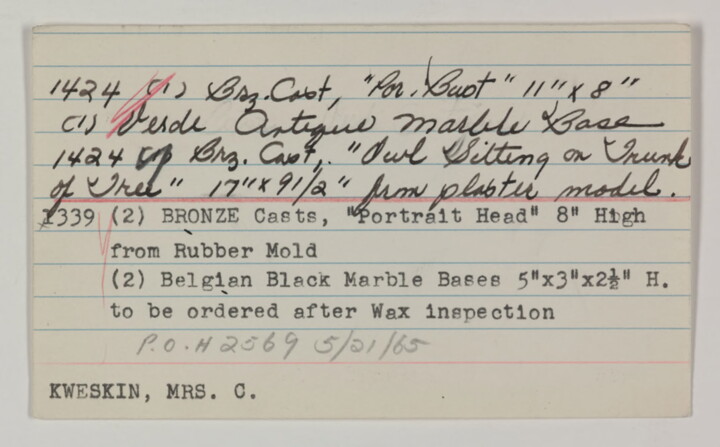 1424 (1) Brz. Cast, "Por. Bust" 11" x 8"
(1) Verde Antique Marble Base
1424 (1) Brz. Cast, "Owl Sitting on Trunk
of Tree" 17" x 9 1/2" from plaster model.
1339 (2) BRONZE Casts, "Portrait Head" 8" High
from Rubber Mold
(2) Belgian Black Marble Bases 5"x3"x2½" H.
to be ordered after Wax inspection
P.O. # 2569 5/21/65
KWESKIN, MRS. C.